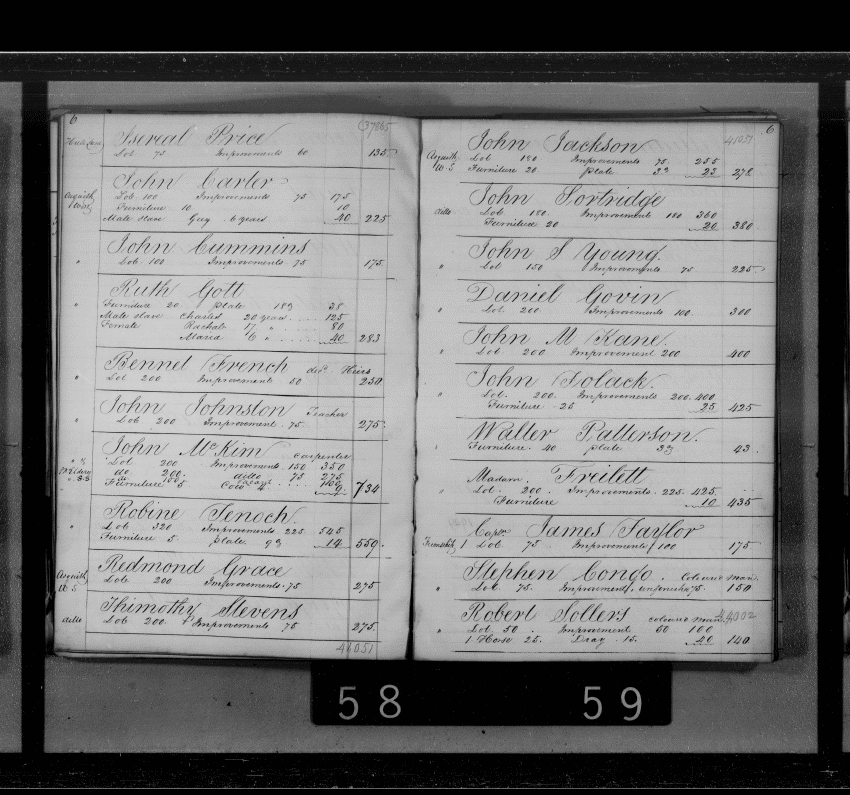 6
37865
Isereal Price
Lot 75 Improvements 60 135
Asquith
John Carter
Lot 100 Improvements 75 175
Furniture 10 10
Male slave Guy 6 years 40 225
John Cummins
" Lot 100 Improvements 75 175
Ruth Gott
" Furniture 20 plate 18 38
Male slave Charles 20 years 125
Female Rachale 17 " 80
Maria 6 " 40 283
Bennet French Heirs
" Lot 200 Improvements 50 250
John Johnston Teacher
" Lot 200 Improvement 75 275
John McKim carpenter
Lot 200 Improvements 150 350
do 200 ditto 75 275
Furniture 5 Cow 4 9 734
Robine Tenoch
" Lot 320 Improvements 225 545
Furniture 5 plate 9 14 559
Redmond Grace
Asquith
W S Lot 200 Improvements 75 275
Thimothy Stevens
ditto Lot 200 Improvements 75 275
41051
6
41051
John Jackson
Asquith
W S Lot 180 Improvements 75 255
Furniture 20 plate 3 23 278
John Sortridge
ditto Lot 180 Improvement 180 360
Furniture 20 20 380
John S Young
" Lot 150 Improvements 75 225
Daniel Govin
" Lot 200 Improvements 100 300
John M Kane
" Lot 200 Improvement 200 400
John Solack
" Lot 200 Improvements 200 400
Furniture 25 25 425
Walter Patterson
Furniture 40 plate 3 43
Madam Freitett
" Lot 200 Improvements 225 425
Furniture 10 435
Capt James Taylor
1 Lot 75 Improvements 100 175
Stephen Congo coloured man
" Lot 75 Improvemts unfinished 75 150
Robert Sollers coloured man
44002
" Lot 50 Improvement 50 100
1 Horse 25 Dray 15 40 140
58 59